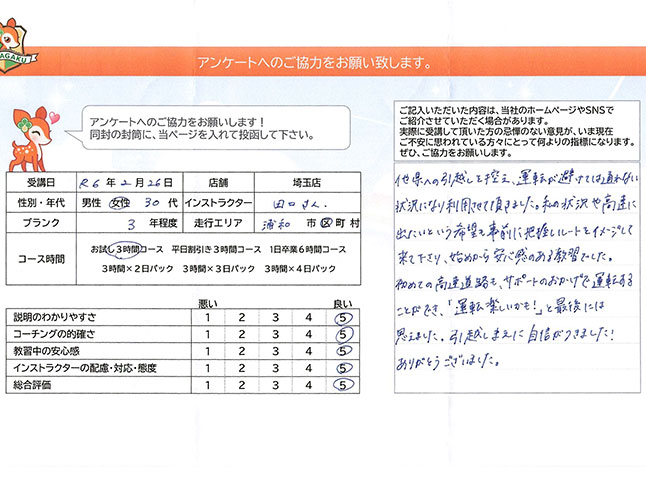 AGAKU
アンケートへのご協力をお願い致します。
アンケートへのご協力をお願いします！
同封の封筒に、当ページを入れて投函して下さい。
受講日 R6年2月26日 店舗 埼玉店
性別・年代 男性 女性 30代 インストラクター 田口さん
ブランク 3年程度 走行エリア 浦和 市区町村
コース時間 お試し3時間コース 平日割引き3時間コース 1日卒業6時間コース
3時間×2日パック 3時間×3日パック 3時間×4日パック
悪い 良い
説明のわかりやすさ 1 2 3 4 5
コーチングの的確さ 1 2 3 4 5
教習中の安心感 1 2 3 4 5
インストラクターの配慮・対応・態度 1 2 3 4 5
総合評価 1 2 3 4 5
ご記入いただいた内容は、当社のホームページやSNSで
ご紹介させていただく場合があります。
実際に受講して頂いた方の忌憚のない意見が、いま現在
ご不安に思われている方々にとって何よりの指標になります。
ぜひ、ご協力をお願いします。
他県への引越しを控え、運転が避けては通れない
状況になり利用させて頂きました。私の状況や高速に
出たいという希望も事前に把握しルートをイメージして
来て下さり、始めから安心感のある教習でした。
初めての高速道路も、サポートのおかげで運転する
ことができ、「運転楽しいかも！」と最後には
思えました。引越しまえに自信ができました！
ありがとうございました。